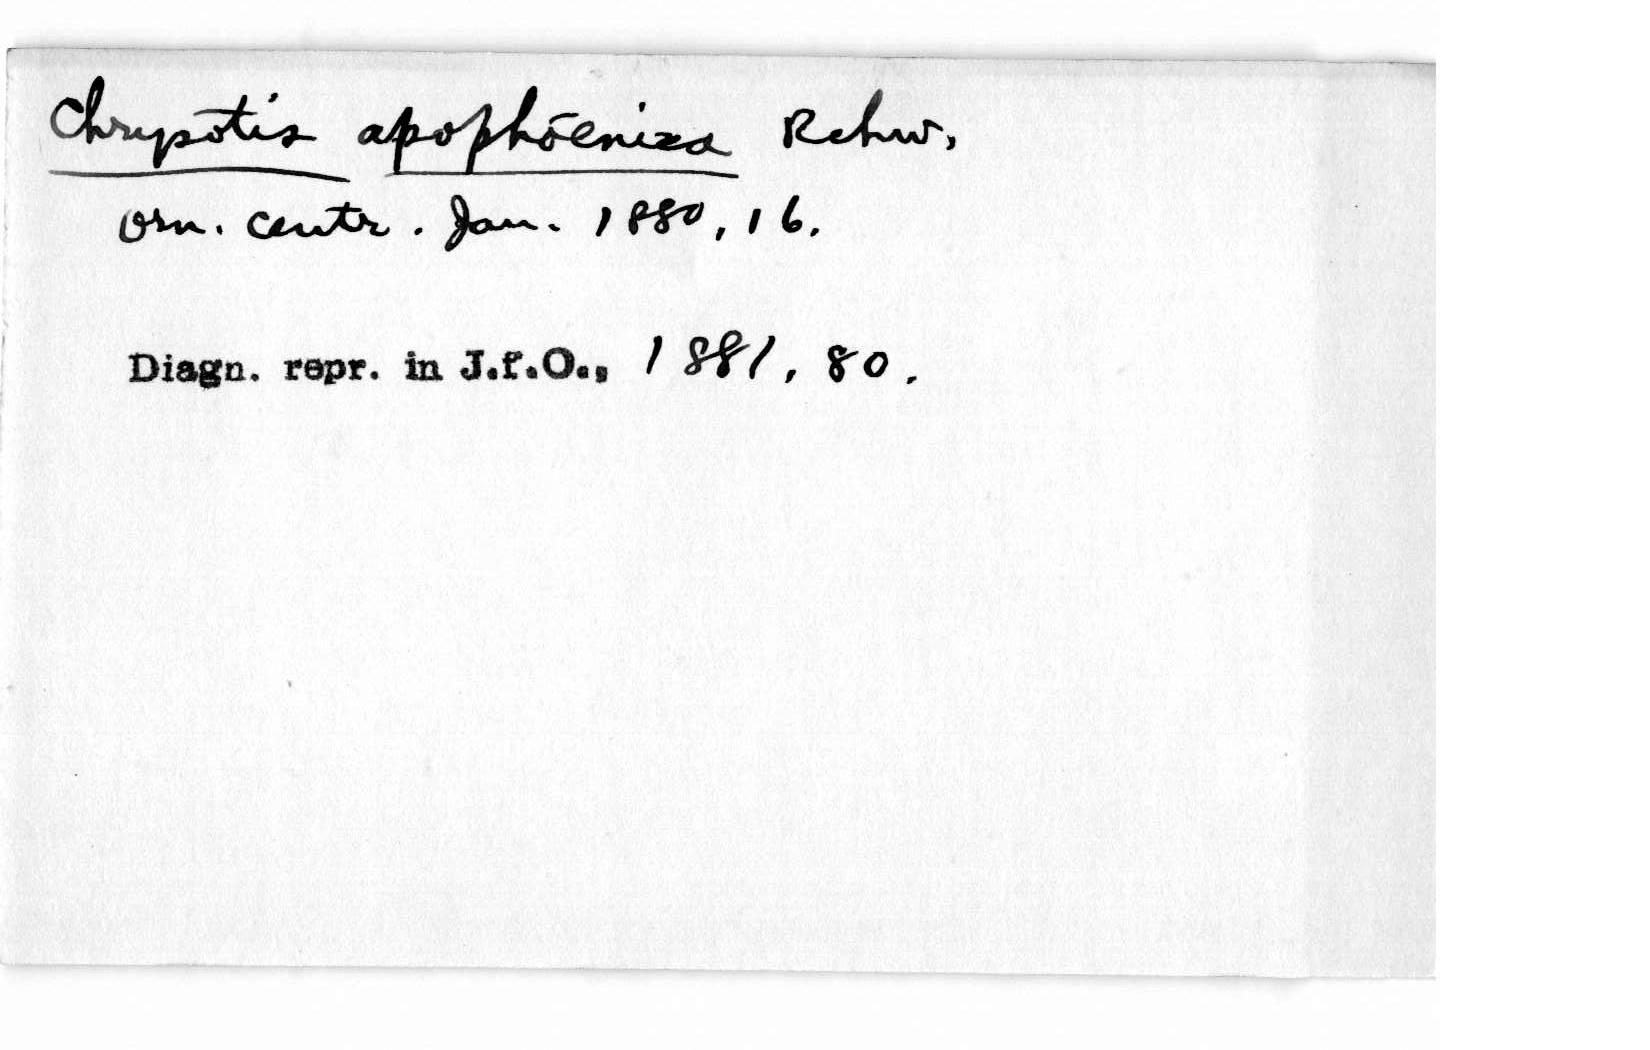 Chrysotis apophoenica Rchw.
Orn. Centr. Jan. 1880, 16.
Diagn. repr. in J.f.O., 1881, 80.